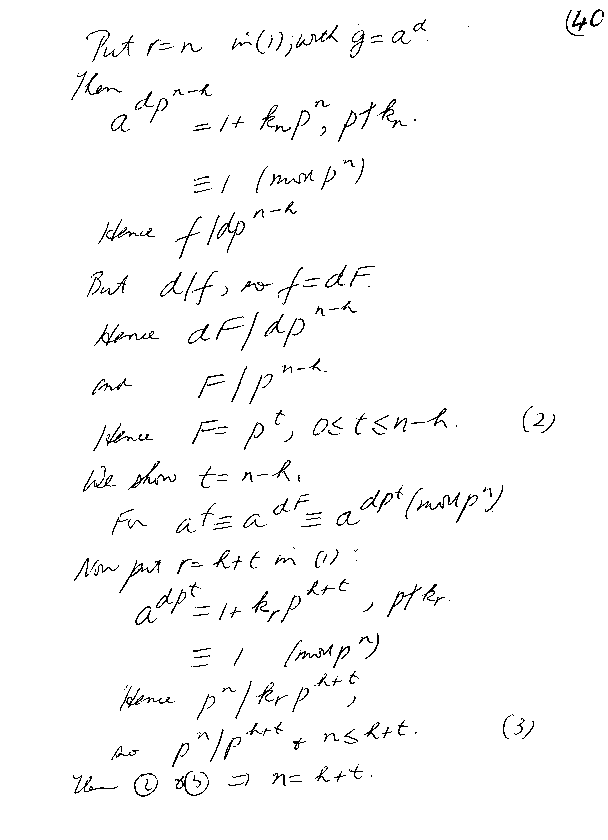 (40
Put r = n in (1), with g = a^d.
Then
a^{dp^{n-h}} = 1 + k_n p^n, p∤k_n.
≡ 1 (mod p^n)
Hence f/dp^{n-h}
But d/f, so f = dF.
Hence dF/dp^{n-h}
and F/p^{n-h}.
Hence F = p^t, 0 ≤ t ≤ n-h. (2)
We show t = n-h.
For a^f ≡ a^{dF} ≡ a^{dp^t} (mod p^n)
Now put r = h+t in (1):
a^{dp^t} = 1 + k_r p^{h+t}, p∤k_r.
≡ 1 (mod p^n)
Hence p^n/k_r p^{h+t},
so p^n/p^{h+t} & n ≤ h+t. (3)
Then ② & ③ ⇒ n = h+t.